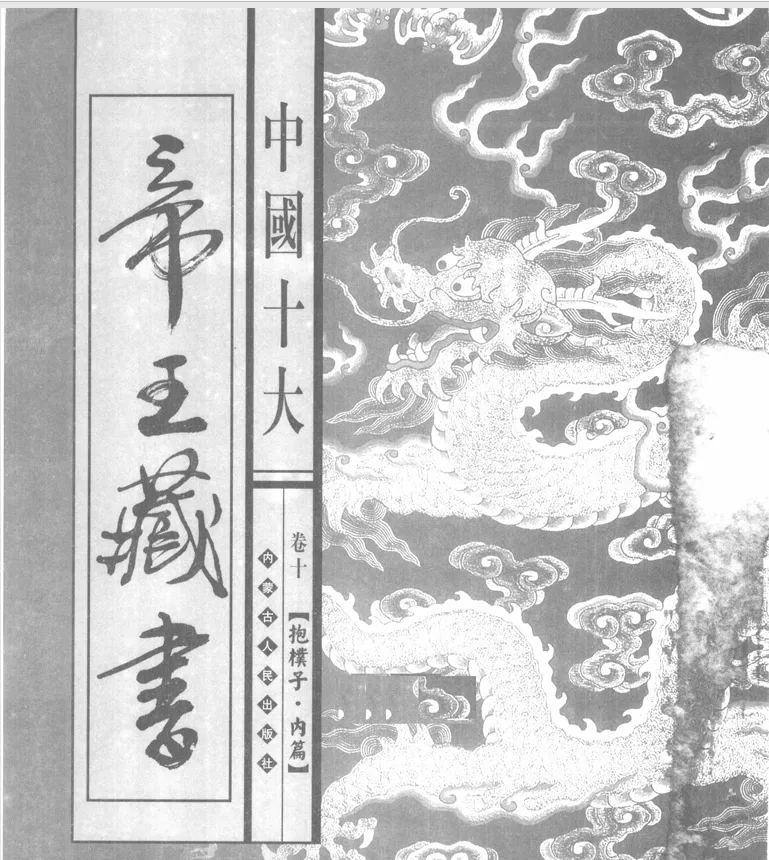 中國十大
帝王藏書
卷十
【抱樸子·内篇】
内蒙古人民出版社